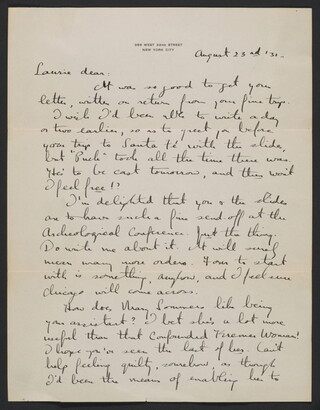 WEST 22nd STREET
NEW YORK CITY
August 23rd '31.
Laurie dear:
It was so good to get your
letter, written on return from your fine trip.
I wish I'd been able to write a day
or two earlier, so as to greet you before
your trip to Santa Fé with the slides,
but "Puck" took all the time there was.
He's to be cast tomorrow, and then won't
I feel free!?
I'm delighted that you & the slides
are to have such a fine send-off at the
Archeological Conference. Just the thing.
Do write me about it. It will surely
mean many more orders. Four to start
with is something, anyhow, and I feel sure
Chicago will come across.
How does Mary Sommers like being
your assistant? I bet she's a lot more
useful than that Confounded Woman!
I hope you've seen the last of her. Can't
help feeling guilty, somehow, as though
I'd been the means of enabling her to